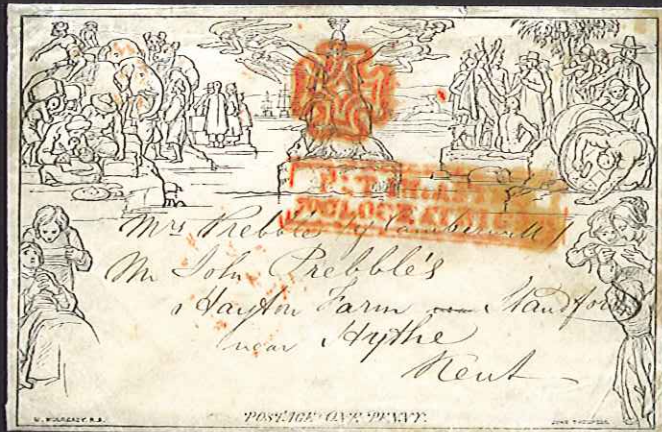 Mrs Prebble
Mr John Prebble's
Hayton Farm near Standford
near Hythe
Kent
W. MULREADY. R.A.
POSTAGE ONE PENNY.
JOHN THOMPSON